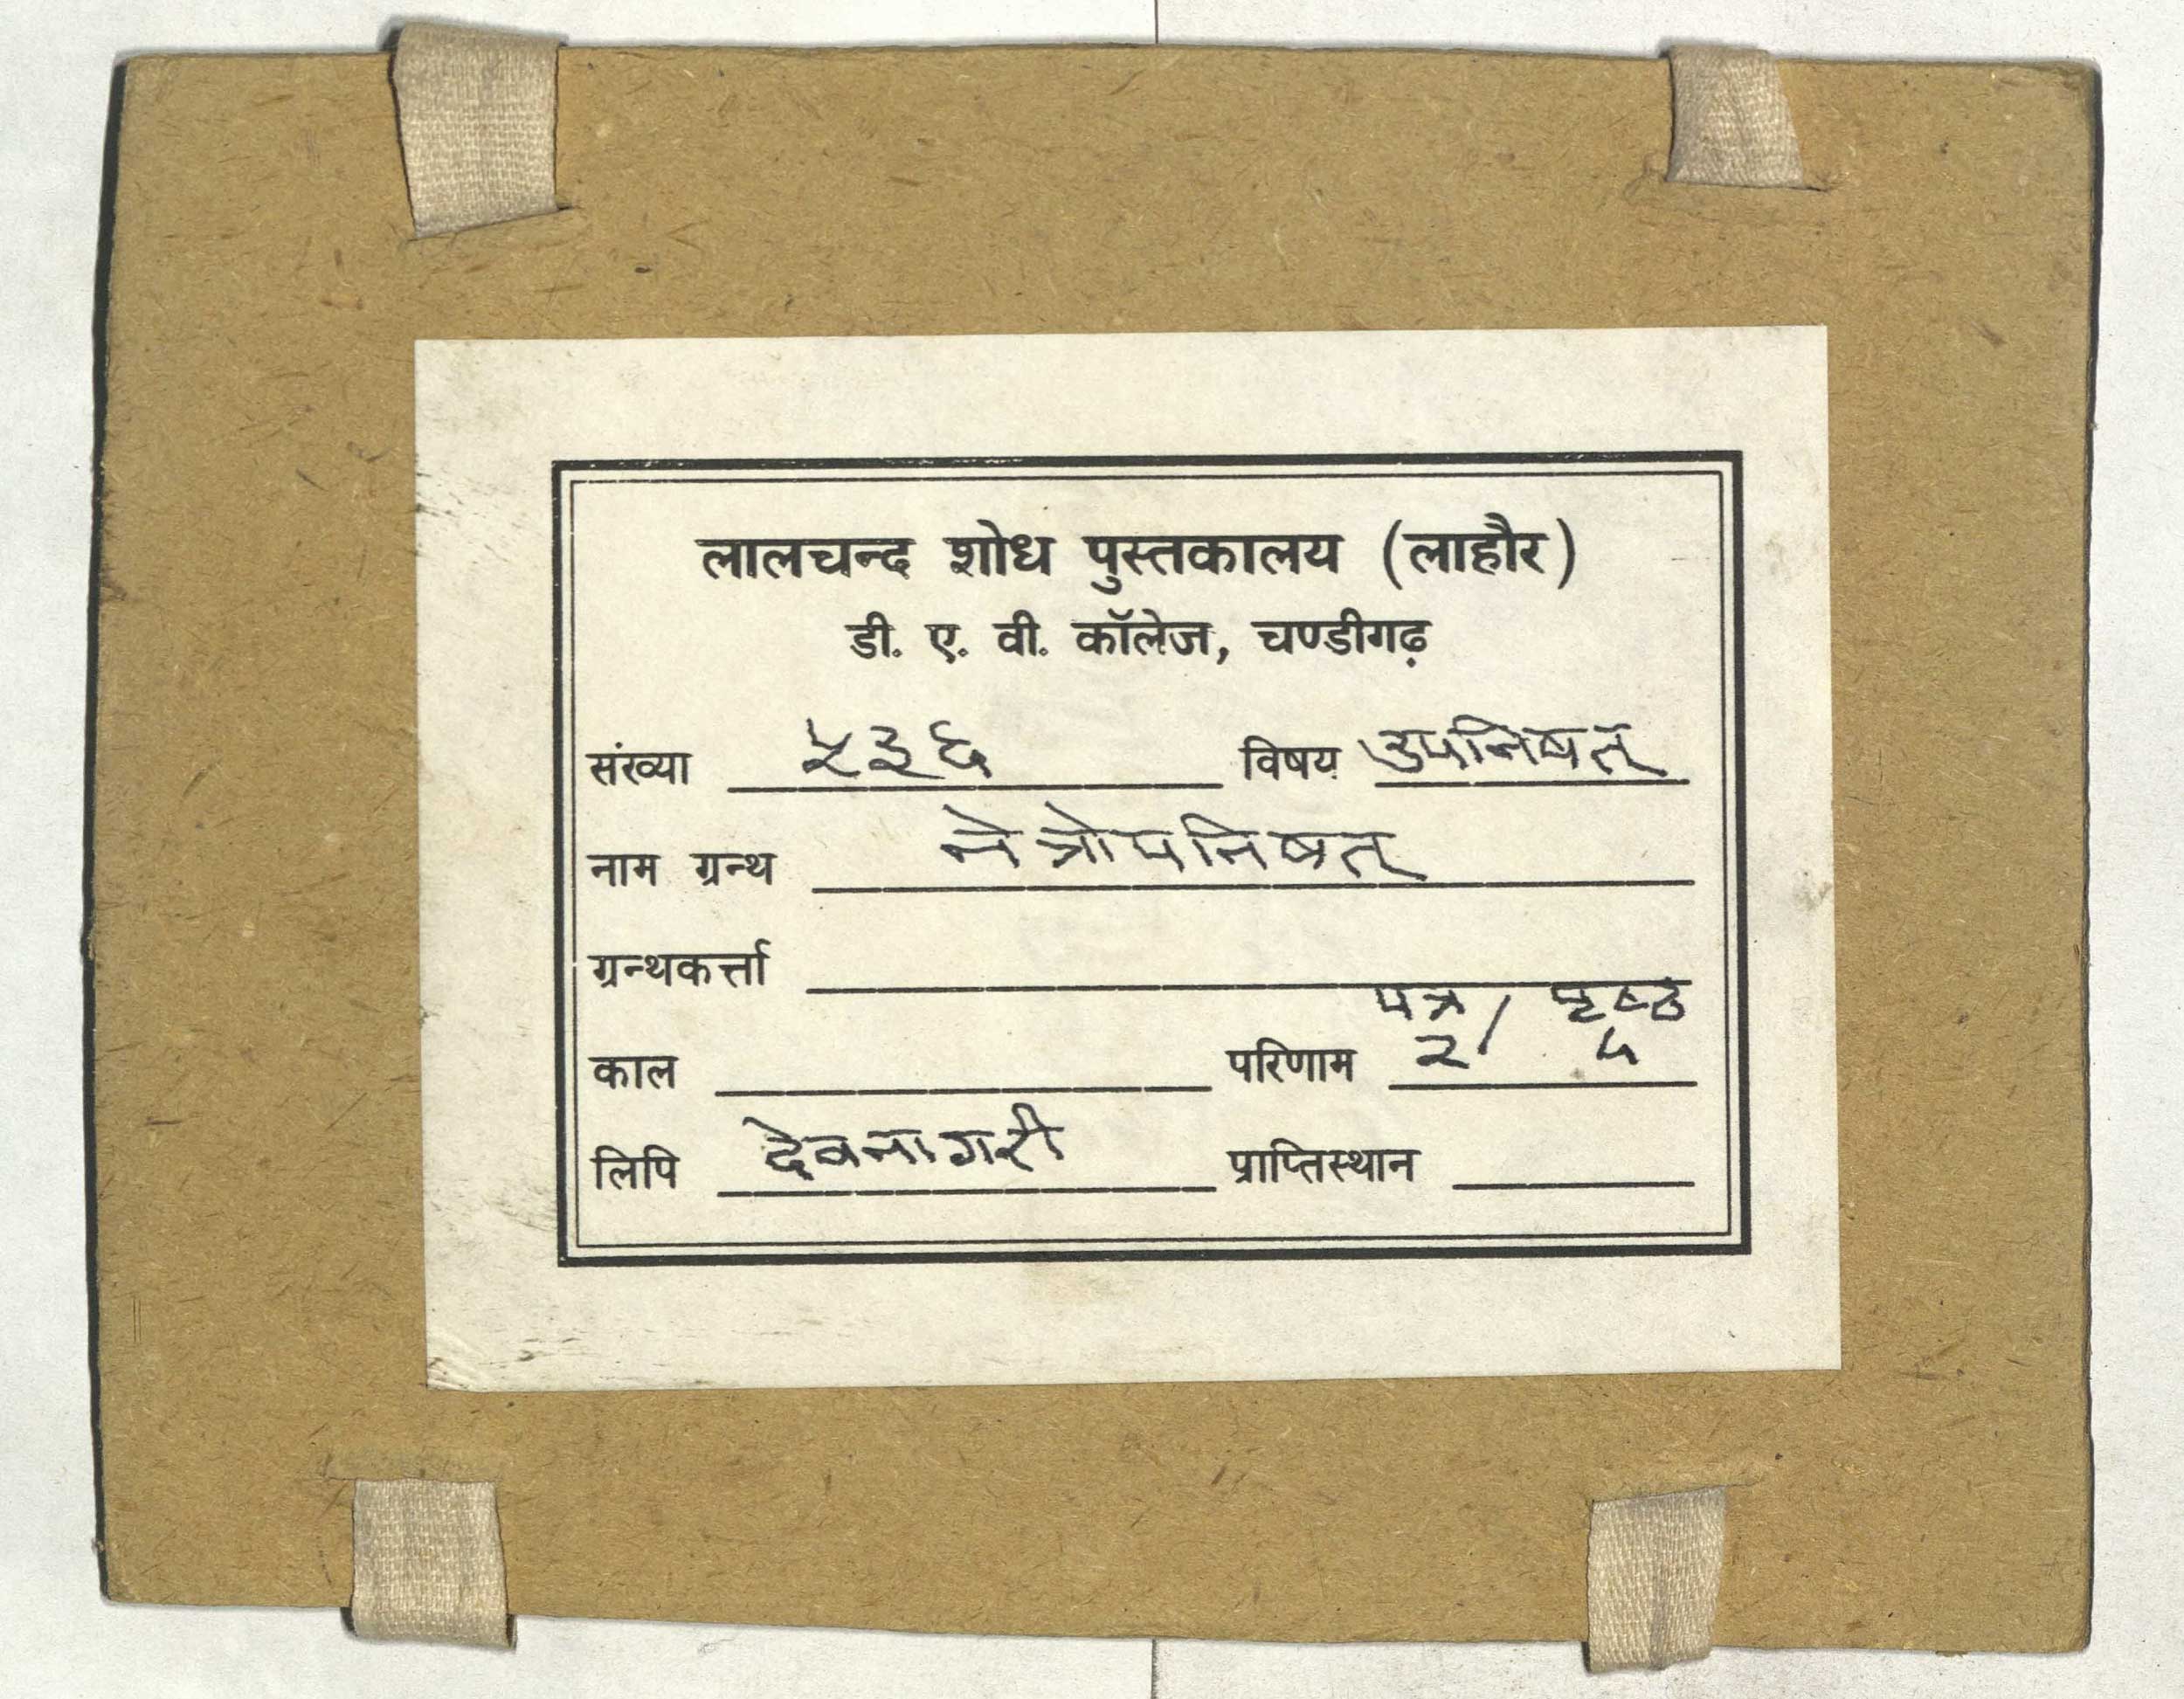 लालचन्द शोध पुस्तकालय (लाहौर)
डी. ए. वी. कॉलेज, चण्डीगढ़
संख्या ५३६ विषय उपनिषत्
नाम ग्रन्थ नेत्रोपनिषत्
ग्रन्थकर्त्ता
पत्र / पृष्ठ
काल परिणाम २/ ५
लिपि देवनागरी प्राप्तिस्थान